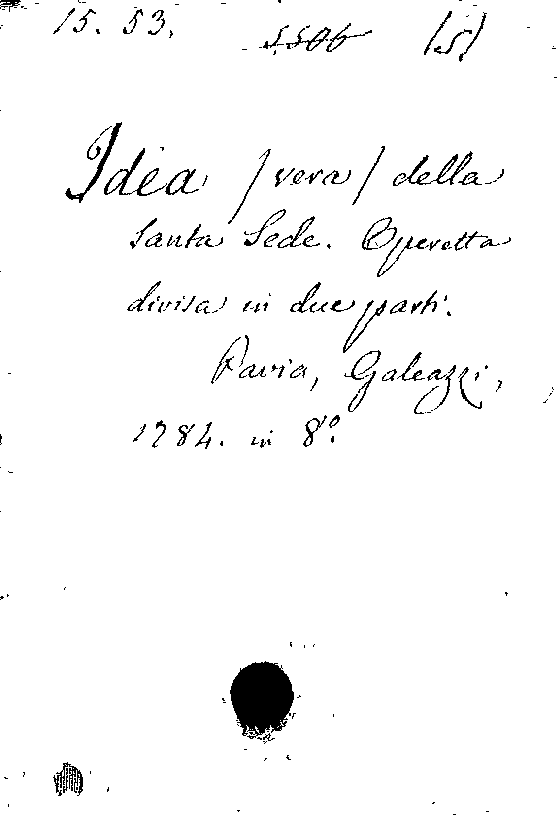 15. 53. 5506 (5)
Idea (vera) della
Santa Sede. Operetta
divisa in due parti.
Pavia, Galeazzi,
1784. in 8º.